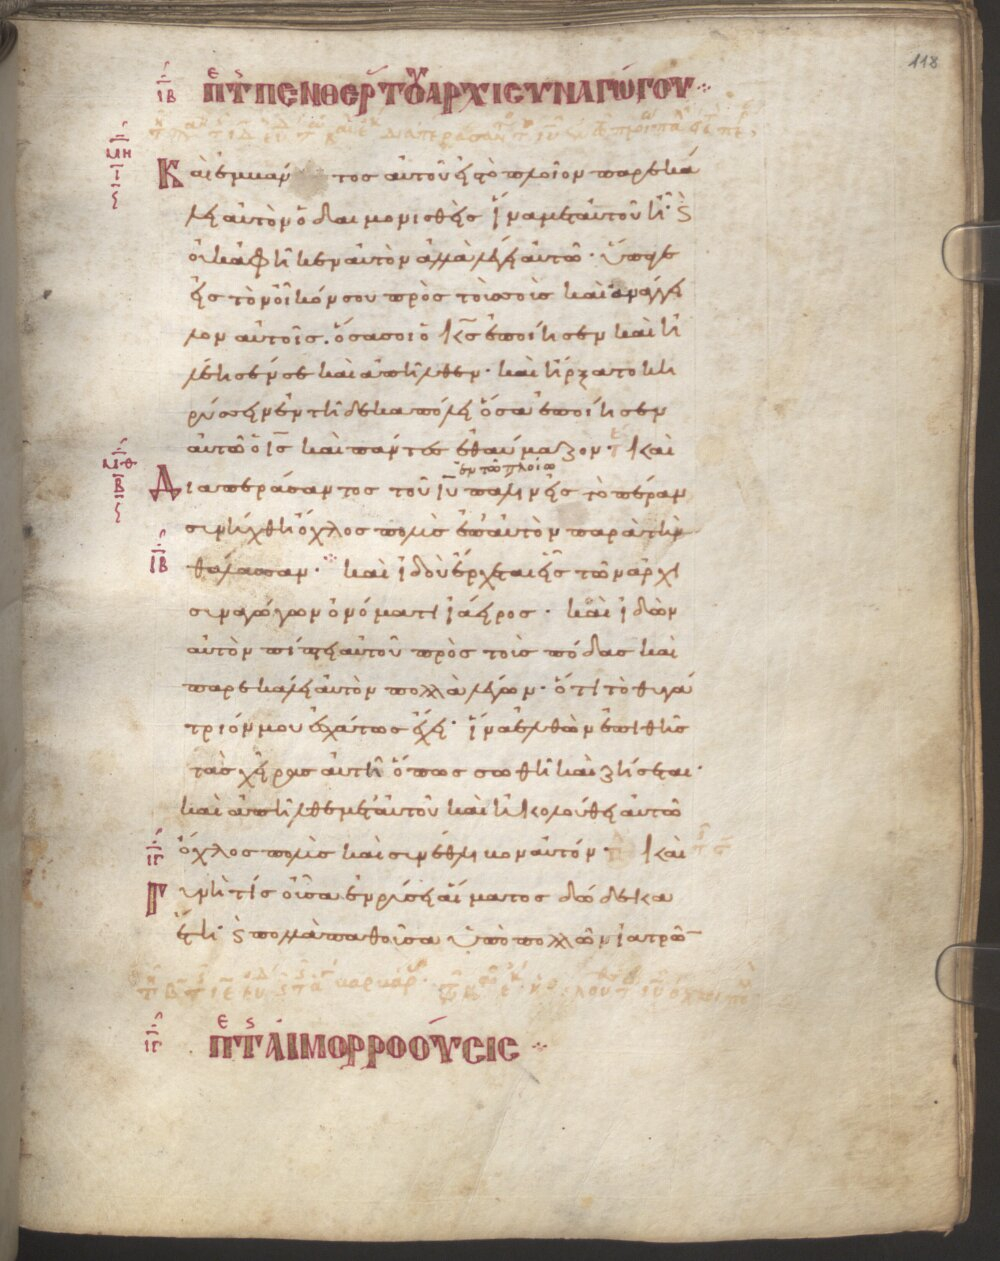 118
ιβ Περὶ τῆς θυγατρὸς τοῦ ἀρχισυναγώγου
μη
Καὶ ἐμβάντος αὐτοῦ εἰς τὸ πλοῖον παρεκά
λει αὐτὸν ὁ δαιμονισθεὶς ἵνα μετ αὐτοῦ ἦ· ϛ
οὐκ ἀφῆκεν αὐτὸν ἀλλὰ λέγει αὐτῶ· ὕπαγε
εἰς τὸν οἶκόν σου πρὸς τοὺς σοὺς καὶ ἀνάγγει
λον αὐτοῖς. ὅσα σοι ὁ κς ἐποίησεν καὶ ἠ
λέησέν σε καὶ ἀπῆλθεν· καὶ ἤρξατο κη
ρύσσειν ἐν τῆ δεκαπόλει ὅσα ἐποίησεν
αὐτῶ ὁ ις καὶ πάντες ἐθαύμαζον· Και
μθ
β
ἐν τῶ πλοίω
Διαπεράσαντος τοῦ ιυ πάλιν εἰς τὸ πέραν
συνήχθη ὄχλος πολὺς ἐπ αὐτὸν παρὰ τὴν
ιβ θάλασσαν· καὶ ἰδοὺ ἔρχεται εἷς τῶν ἀρχι
συναγώγων ὀνόματι ἰάειρος· καὶ ἰδὼν
αὐτὸν πίπτει αὐτοῦ πρὸς τοὺς πόδας καὶ
παρεκάλει αὐτὸν πολλὰ λέγων· ὅτι τὸ θυγά
τριόν μου ἐσχάτως ἔχει· ἵνα ἐλθὼν ἐπιθῆς
τὰς χεῖρας αὐτῆ ὅπως σωθῆ καὶ ζήσεται·
καὶ ἀπῆλθε μετ αὐτοῦ καὶ ἠκολούθει αὐτῶ
ιγ ὄχλος πολὺς καὶ συνέθλιβον αὐτόν· Και
Γυνὴ τίς οὖσα ἐν ρύσει αἵματος δώδεκα
ἔτη· ϛ πολλὰ παθοῦσα ὑπὸ πολλῶν ἰατρῶ
ιγ Περὶ τῆς αἱμορροούσις